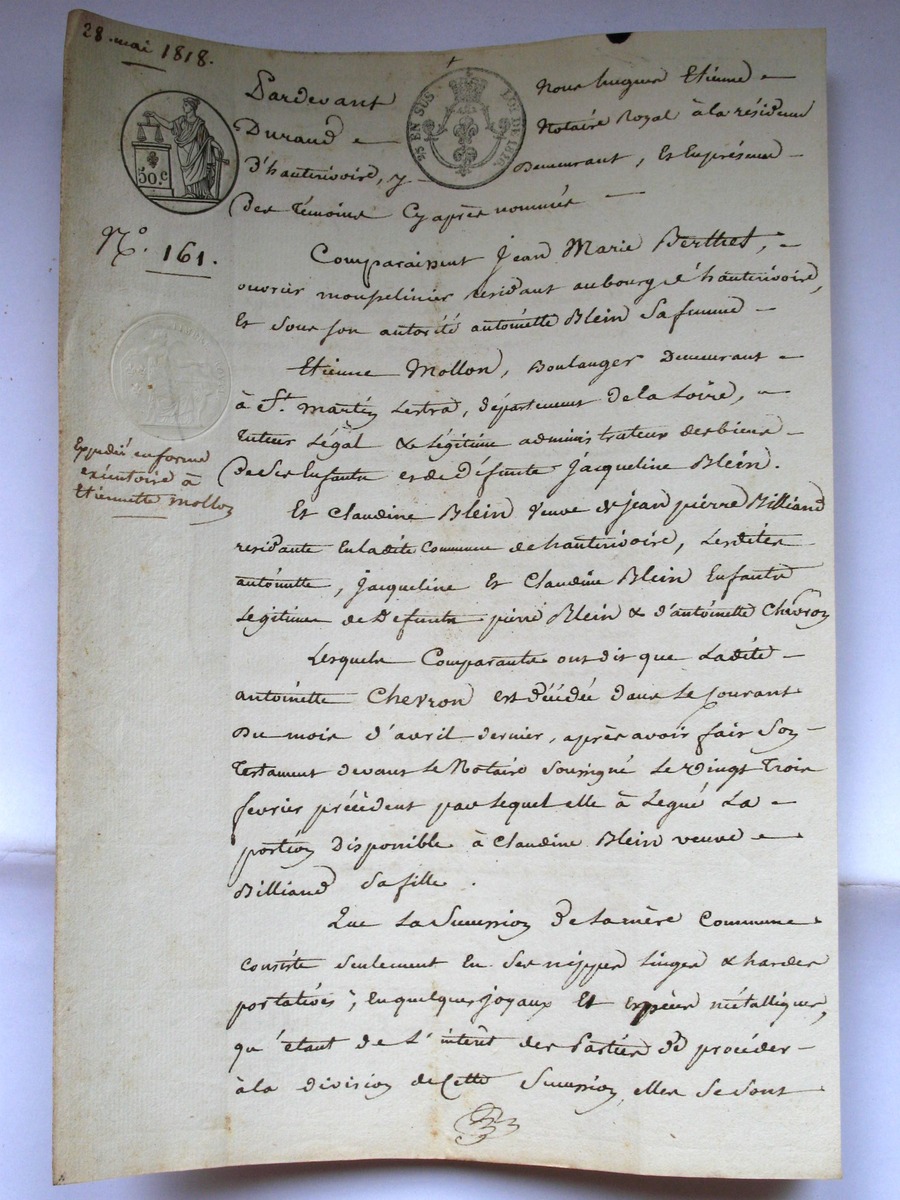 28 mai 1818.
Pardevant Nous hugues Etienne
Durand Notaire Royal à la résidence
D'hauterivoire, y Demeurant, Et En présence
Des témoins Cy après nommés
50.C
25 EN SUS
LOI DE 1816.
N.o 161.
Comparaissent Jean Marie Berthet,
ouvrier mousselinier résidant au bourg d'hauterivoire,
Et sous son autorité antoinette Blein sa femme
Etienne Mollon, Boulanger Demeurant
à St. martin Lestra, département de la Loire,
tuteur Légal & Légitime administrateur des biens
De Ses Enfants et de Défunte Jacqueline Blein.
Expédié en forme
exécutoire à
Etiennette Mollon
Et Claudine Blein veuve de jean pierre Billiand
residante En ladite Commune de hauterivoire, Lesdites
antoinette, Jacqueline Et Claudine Blein Enfants
Legitimes de Défunts pierre Blein & d'antoinette Chevron
Lesquels Comparants ont dit que Ladite
antoinette Chevron est décédée dans le Courant
Du mois d'avril dernier, après avoir fait Son
Testament devant Le Notaire Soussigné Le vingt Trois
fevrier précédent par Lequel elle à Legué La
portion Disponible à Claudine Blein veuve
Billiand Sa fille.
Que La Succession De la mère Commune
Consiste Seulement En Ses nippes Linges & hardes
portatives, En quelques joyaux Et Espèces métalliques,
qu'étant de L'intérêt des Parties De procéder
à la division de Cette Succession, elles Se Sont